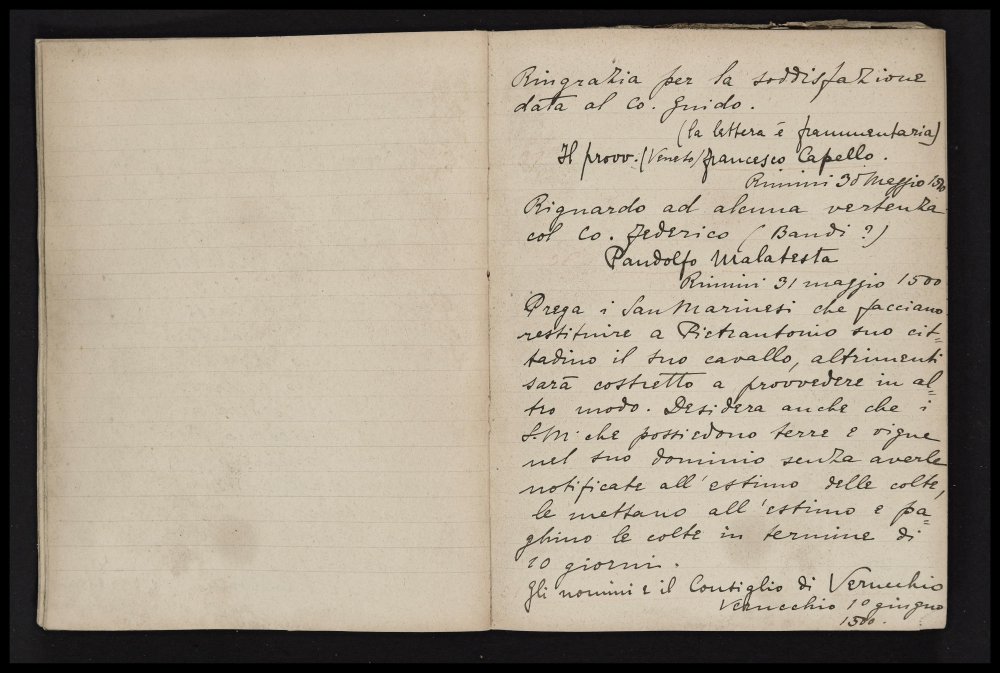 Ringrazia per la soddisfazione
data al Co. Guido.
(la lettera è frammentaria)
Il provv. (Veneto) Francesco Capello.
Rimini 30 Maggio 1500
Riguardo ad alcuna vertenza
col Co. Federico (Bandi?)
Pandolfo Malatesta
Rimini 31 maggio 1500
Prega i San Marinesi che facciano
restituire a Pietrantonio suo cit=
tadino il suo cavallo, altrimenti
sarà costretto a provvedere in al=
tro modo. Desidera anche che i
S.M. che possiedono terre e vigne
nel suo dominio senza averle
notificate all'estimo delle colte,
le mettano all'estimo e pa=
ghino le colte in termine di
10 giorni.
Gli uomini e il Consiglio di Verucchio
Verucchio 1º giugno
1500.